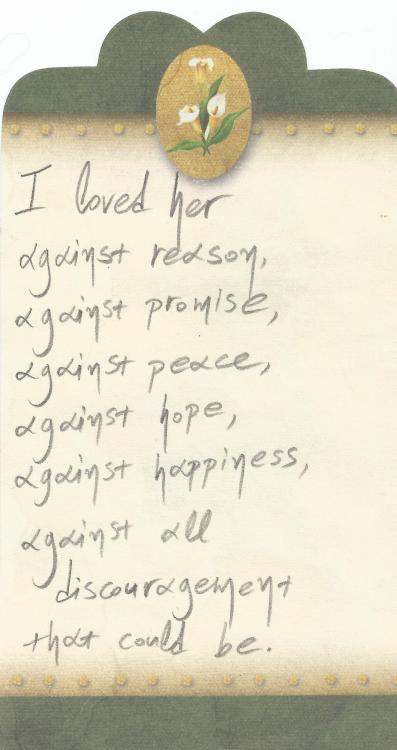 I loved her
against reason,
against promise,
against peace,
against hope,
against happiness,
against all
discouragement
that could be.